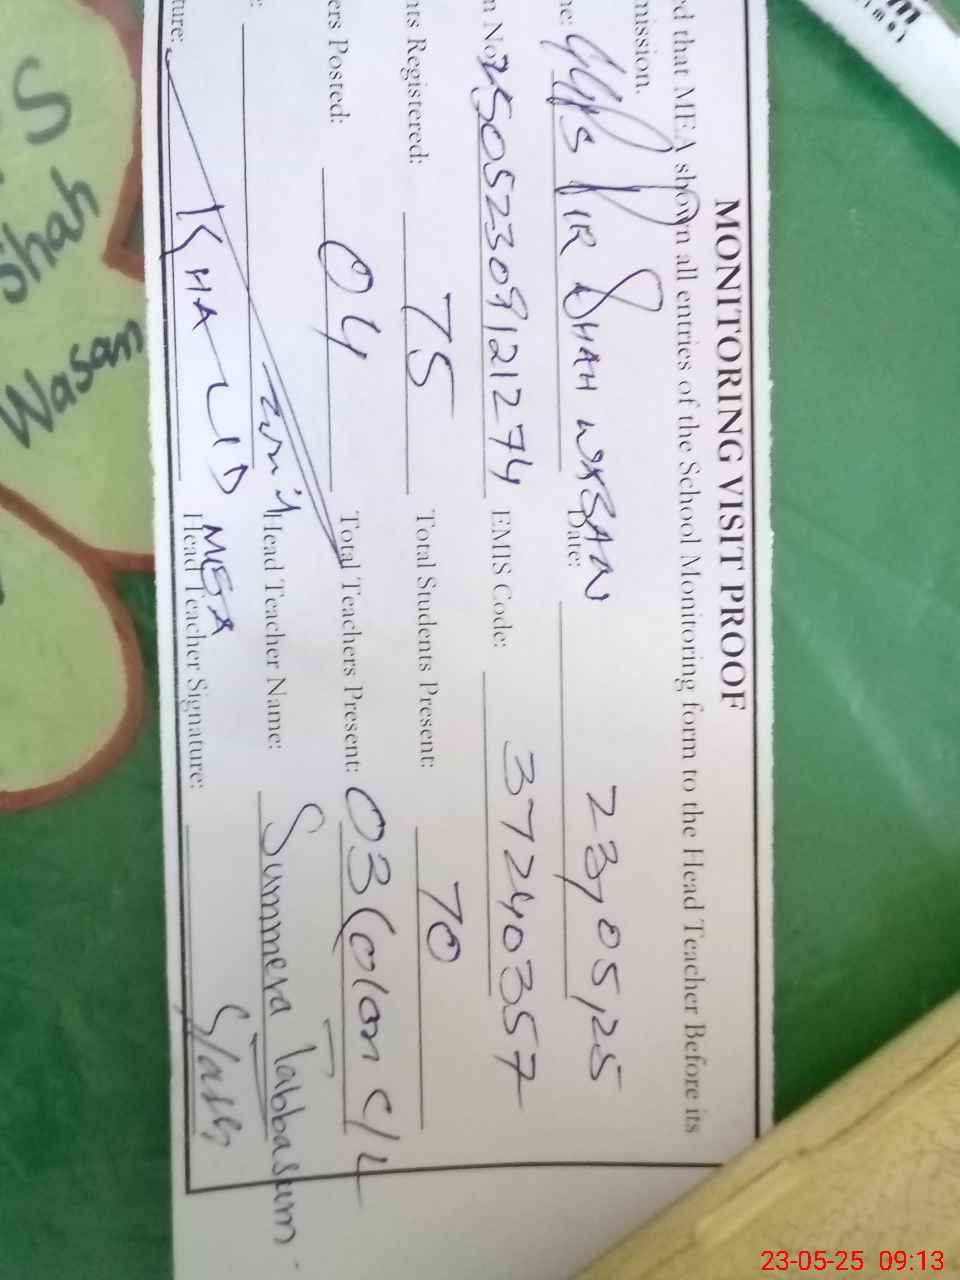 MONITORING VISIT PROOF
d that MEA shown all entries of the School Monitoring form to the Head Teacher Before its
mission.
ne: GGPS PIR SHAH WASAN Date: 23,05,25
n No 25052309121274 EMIS Code: 37240357
nts Registered: 75 Total Students Present: 70
ers Posted: 04 Total Teachers Present: 03 (01 on C/L
Head Teacher Name: Summera Tabbasum
ture: KHALID MEA Head Teacher Signature:
S
Shah
Wasan
23-05-25 09:13